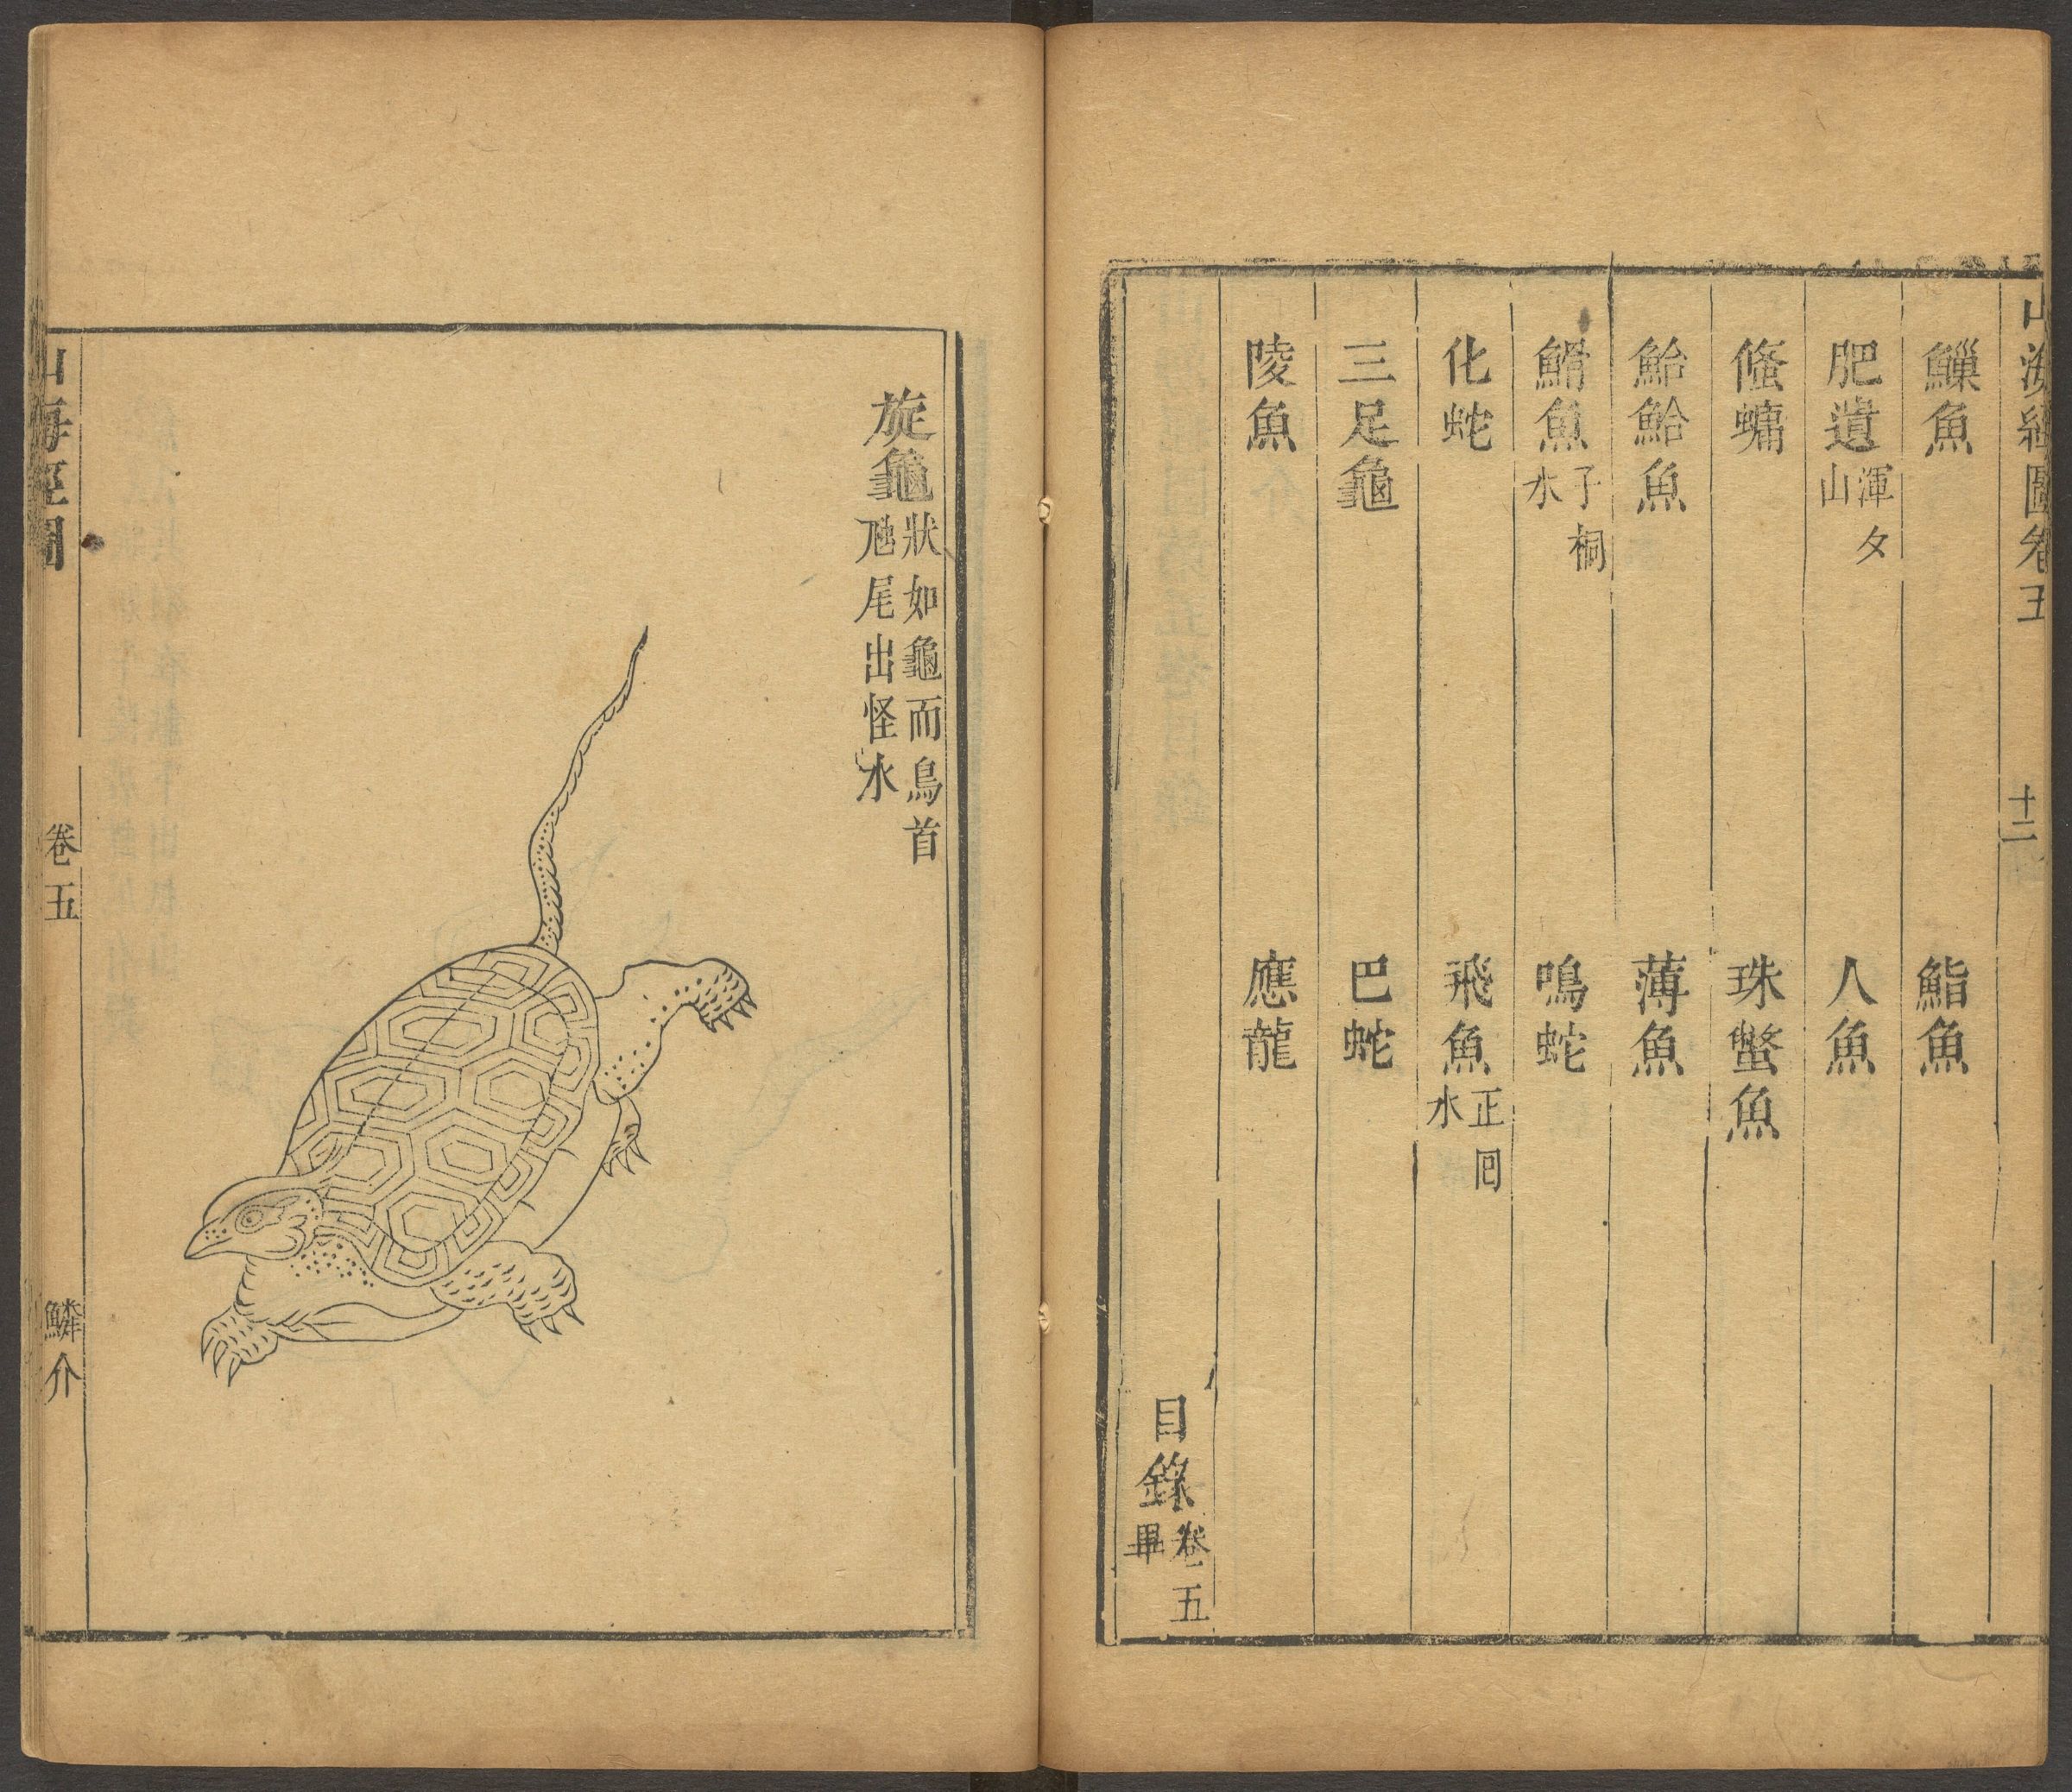 山海經圖卷五
十二
鱲魚
鮨魚
肥遺渾夕山
人魚
鯈鱅
珠蟞魚
鮯鮯魚
薄魚
䱻魚子桐水
鳴蛇
化蛇
飛魚正囘水
三足龜
巴蛇
陵魚
應龍
目錄卷五畢
旋龜
狀如龜而鳥首
虺尾出怪水
山海經圖
卷五
鱗介